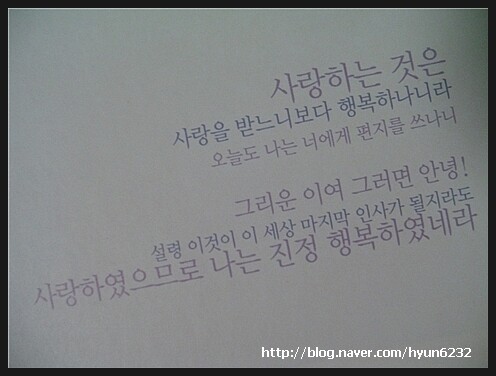 사랑하는 것은
사랑을 받느니보다 행복하나니라
오늘도 나는 너에게 편지를 쓰나니
그리운 이여 그러면 안녕!
설령 이것이 이 세상 마지막 인사가 될지라도
사랑하였으므로 나는 진정 행복하였네라
http://blog.naver.com/hyun6232